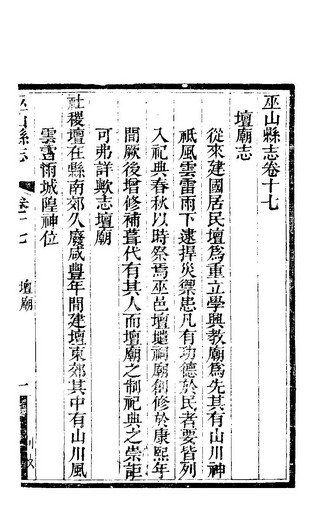 巫山縣志卷十七
壇廟志
從來建國居民壇爲重立學興教廟爲先其有山川神
祇風雲雷雨下逮捍災禦患凡有功德於民者要皆列
入祀典春秋以時祭焉巫邑壇壝祠廟創修於康熙年
間厥後增修補葺代有其人而壇廟之制祀典之崇詎
可弗詳歟志壇廟
社稷壇在縣南郊久廢咸豐年間建壇東郊其中有山川風
雲雷雨城隍神位
巫山縣志
卷十七
壇廟
一